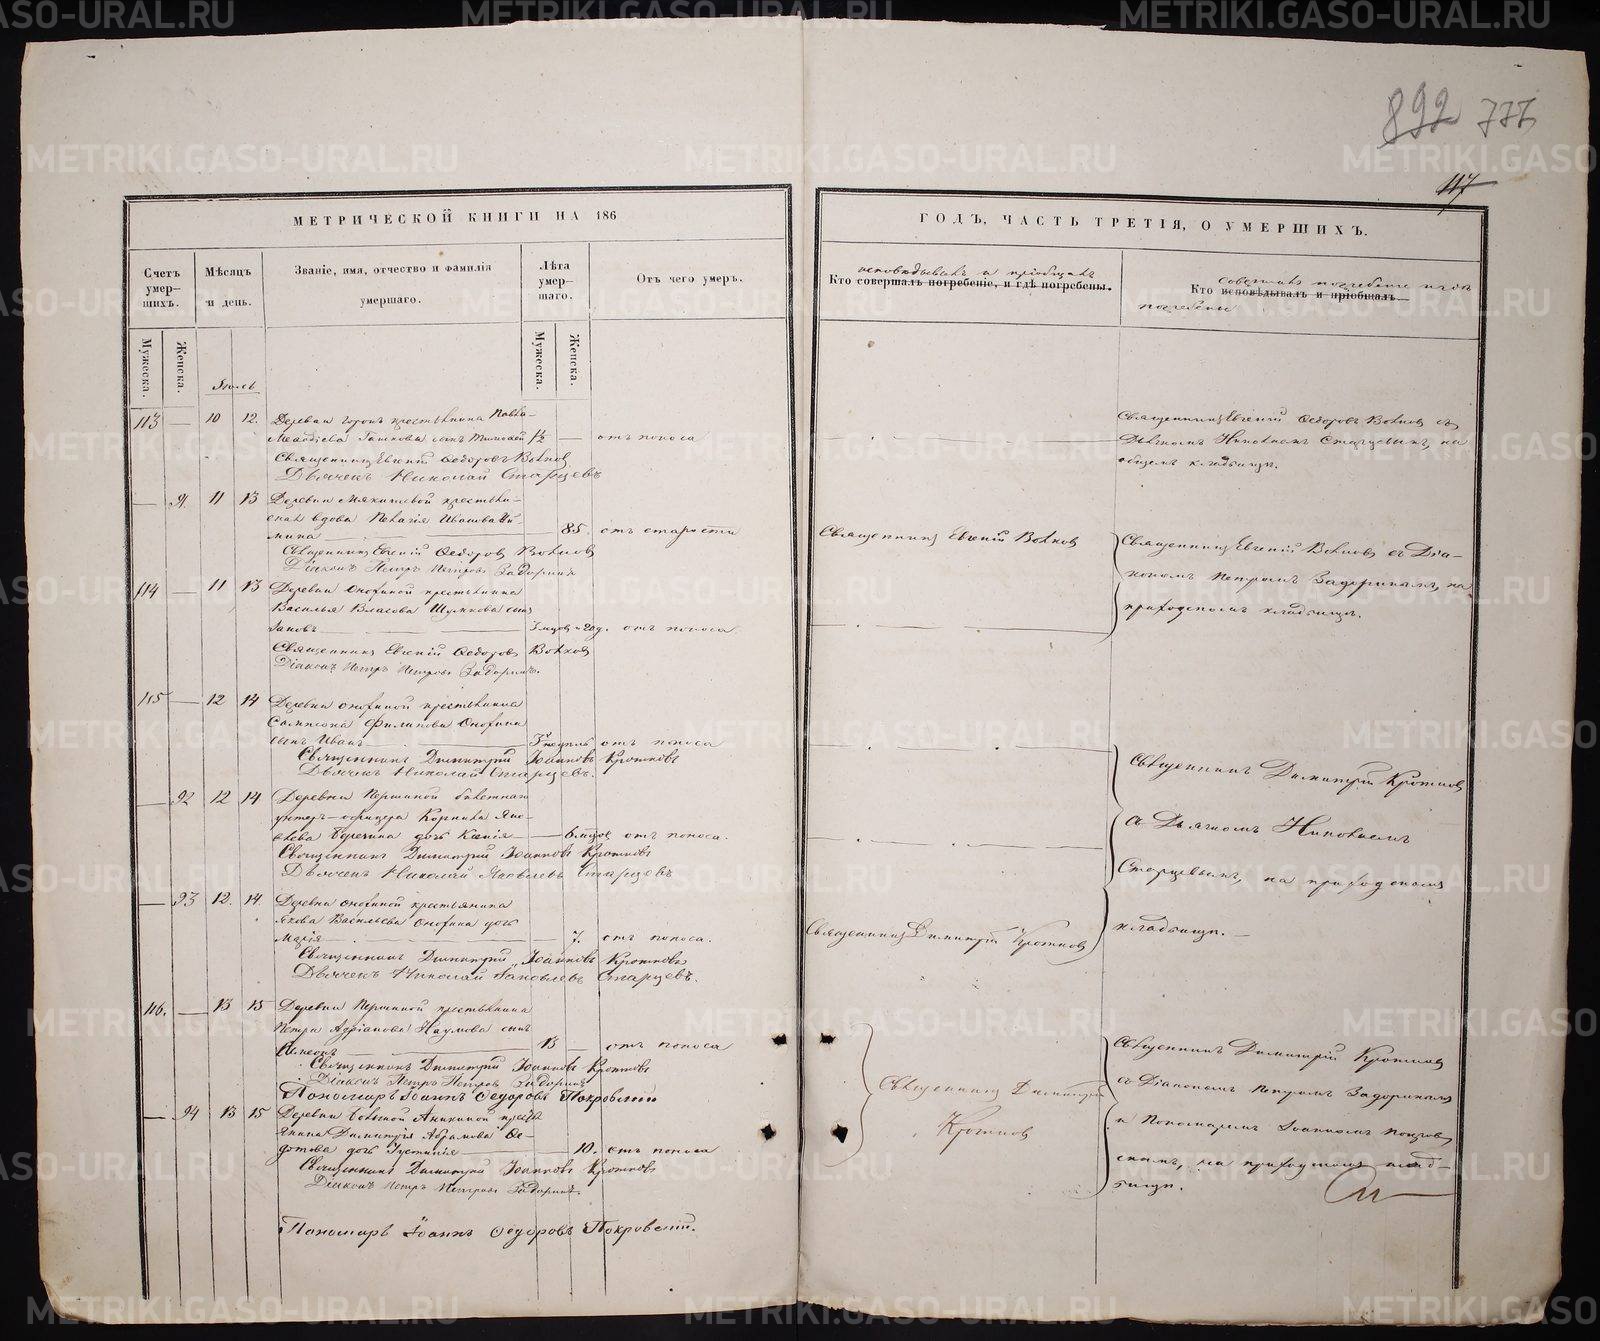 892 777
117
МЕТРИЧЕСКОЙ КНИГИ НА 186
Счетъ умер-шихъ.
Мѣсяцъ и день.
Званіе, имя, отчество и фамилія умершаго.
Лѣта умер-шаго.
Отъ чего умеръ.
Мужеска.
Женска.
Мужеска.
Женска.
Іюль
113 — 10 12. Деревни Горы крестьянина Павла
Меѳодіева сынъ Тимоѳей 1/2 — отъ поноса
Священникъ Евгеній Ѳедоровъ Волковъ
Дьячекъ Николай Старцевъ
— 91. 11 13 Деревни крестьян-
ская вдова Пелагія Иванова
— 85. отъ старости
Священникъ Евгеній Ѳедоровъ Волковъ
Діаконъ Петръ Петровъ Задоринъ
114 — 11 13 Деревни крестьянина
Василья Власова Шумкова сынъ
— отъ поноса
Священникъ Евгеній Ѳедоровъ Волковъ
Діаконъ Петръ Петровъ Задоринъ.
115 — 12 14 Деревни крестьянина
Сампсона Филипова
сынъ Иванъ — 3 недѣль отъ поноса
Священникъ Димитрій Іоанновъ Кротковъ
Дьячекъ Николай Старцевъ.
— 92 12 14 Деревни Першиной билетнаго
унтеръ-офицера Корнила Яко-
влева дочь — 6 мѣсцов отъ поноса.
Священникъ Димитрій Іоанновъ Кротковъ
Дьячекъ Николай Яковлевъ Старцевъ
— 93 12. 14. Деревни крестьянина
Якова Васильева дочь
Марія — 7. отъ поноса.
Священникъ Димитрій Іоанновъ Кротковъ
Дьячекъ Николай Яковлевъ Старцевъ.
116. — 13 15 Деревни Першиной крестьянина
Петра Адріанова Наумова сынъ
Симеонъ — 13 — отъ поноса
Священникъ Димитрій Іоанновъ Кротковъ
Діаконъ Петръ Петровъ Задоринъ
Пономарь Іоаннъ Ѳедоровъ Покровскій
— 94 13 15 Деревни Большой Аникиной крестья-
янина Димитрія Абрамова Ѳе-
дотова дочь Іустинія — 10. отъ поноса
Священникъ Димитрій Іоанновъ Кротковъ
Діаконъ Петръ Петровъ Задоринъ.
Пономарь Іоаннъ Ѳедоровъ Покровскій.
ГОДЪ, ЧАСТЬ ТРЕТІЯ, О УМЕРШИХЪ.
исповѣдывалъ и пріобщалъ
Кто совершалъ погребеніе, и гдѣ погребены.
совершалъ погребеніе и гдѣ
Кто исповѣдывалъ и пріобщалъ
погребены
Священникъ Евгеній Ѳедоровъ Волковъ съ
Дьячкомъ Николаемъ Старцевымъ, на
общемъ кладбищѣ.
Священникъ Евгеній Волковъ
Священникъ Евгеній Волковъ съ Діа-
кономъ Петромъ Задоринымъ, на
приходскомъ кладбищѣ.
Священникъ Димитрій Кротковъ
съ Дьячкомъ Николаемъ
Старцевымъ, на приходскомъ
кладбищѣ.
Священникъ Димитрій Кротковъ
Священникъ Димитрій
Кротковъ
Священникъ Димитрій Кротковъ
съ Діакономъ Петромъ Задоринымъ
и Пономаремъ Іоанномъ Покров-
скимъ, на приходскомъ клад-
бищѣ.
METRIKI.GASO-URAL.RU